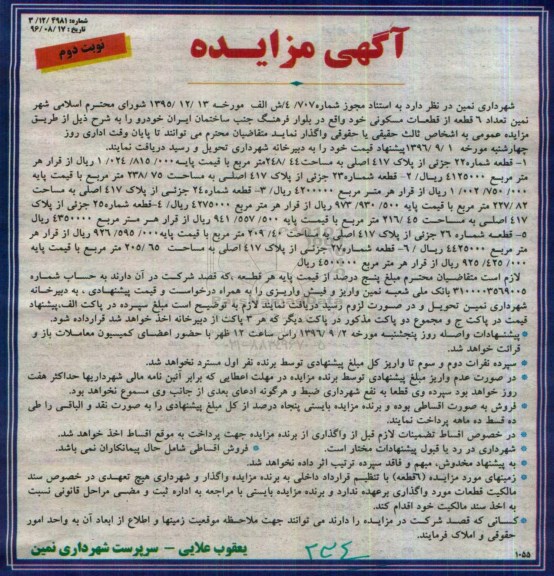 شماره: ۳/۱۲/۴۹۸۱
تاریخ: ۹۶/۰۸/۱۷
نوبت دوم
آگهی مزایده
شهرداری نمین در نظر دارد به استناد مجوز شماره۷۰۷/ ۴/ش الف مورخــه ۱۳ /۱۲ /۱۳۹۵ شورای محتـرم اسلامی شهر
نمین تعداد ۶ قطعه از قطعـات مسکونی خود واقع در بلوار فرهنگ جنب ساختمان ایران خودرو را به شرح ذیل از طریق
مزایده عمومی به اشخاص ثالث حقیقی یا حقوقی واگذار نمایـد متقاضیان محترم می توانند تا پایان وقت اداری روز
چهارشنبه مورخه ۱ /۹ /۱۳۹۶پیشنهاد قیمت خود را به دبیرخانه شهرداری تحویل و رسید دریافت نمایند.
۱- قطعه شماره۲۲ جزئی از پلاک ۴۱۷ اصلی به مساحت۲۴۸/۴۴ متر مربع با قیمت پایه۰۰۰/ ۸۱۵/ ۱/۰۲۴ ریال از قرار هر
متر مربـع ۴۱۲۵۰۰۰ ریـال/ ۲- قطعه شماره۲۳ جزئی از پلاک ۴۱۷ اصلـی به مساحت ۲۳۸/۷۵ متر مربـع با قیمت پایه
۰۰۰/ ۷۵۰/ ۱/۰۰۲ ریال از قرار هر متـر مربـع ۴۲۰۰۰۰۰ ریال/ ۳- قطعه شماره۲۴ جزئـی از پلاک ۴۱۷ اصلی به مساحت
۲۲۷/۸۲ متر مربع با قیمت پایه ۵۰۰/ ۹۳۰/ ۹۷۳ ریال از قرار هر متر مربع ۴۲۷۵۰۰۰ ریال/ ۴-قطعه شماره۲۵ جزئی از پلاک
۴۱۷ اصلـی به مسـاحت ۲۱۶/۴۵ متر مربـع با قیمت پایه ۵۰۰/ ۵۵۷/ ۹۴۱ ریال از قرار هـر متـر مربـع ۴۳۵۰۰۰۰ ریـال
۵- قطعه شمـاره ۲۶ جزئی از پلاک ۴۱۷ اصلی به مساحت ۲۰۹/۴۰ متر مربع با قیمت پایه ۰۰۰/ ۵۹۵/ ۹۲۶ ریال از قرار هر
متر مربـع ۴۴۲۵۰۰۰ ریـال / ۶- قطعه شماره۲۷ جزئـی از پلاک ۴۱۷ اصلی به مساحت ۲۰۵/۶۵ متر مربـع با قیمت پایه
۰۰۰/ ۴۲۵/ ۹۲۵ ریال از قرار هر متر مربع ۴۵۰۰۰۰۰ ریال
لازم است متقاضیـان محتـرم مبلغ پنـج درصد از قیمت پایه هر قطعـه ،که قصد شرکـت در آن دارند به حساب شماره
۳۱۰۰۰۰۳۵۶۹۰۰۵ بانک ملی شعبـه نمین واریز و فیـش واریـزی را به همراه درخواسـت و قیمت پیشنهـادی ، به دبیرخانه
شهرداری نمیـن تحویـل و در صـورت لزوم رسید دریافت نمایند لازم به توضیح است مبلغ سپـرده در پاکت الف،پیشنهاد
قیمت در پاکت ج و مجموع دو پاکت مذکور در پاکت دیگر که هر ۳ پاکت از دبیرخانه اخذ خواهد شد قرارداده شود.
پیشنهادات واصله روز پنجشنبه مورخه ۲ /۹ /۱۳۹۶ راس ساعت ۱۲ ظهر با حضور اعضـای کمیسیون معاملات باز و
قرائت خواهد شد.
سپرده نفرات دوم و سوم تا واریز کل مبلغ پیشنهادی توسط برنده نفر اول مسترد نخواهد شد.
در صورت عدم واریز مبلغ پیشنهادی توسط برنده مزایده در مهلت اعطایی که برابر آئین نامه مالی شهرداریها حداکثر هفت
روز خواهد بود سپرده وی قطعا به نفع شهرداری ضبط و هرگونه ادعای بعدی از جانب وی مسموع نخواهد بود.
فروش به صورت اقساطی بوده و برنده مزایده بایستی پنجاه درصد از کل مبلغ پیشنهادی را به صورت نقد و الباقـی را طی
ده قسط ده ماهه پرداخت نمایند.
در خصوص اقساط تضمینات لازم قبل از واگذاری از برنده مزایده جهت پرداخت به موقع اقساط اخذ خواهد شد.
شهرداری در رد یا قبول پیشنهادات مختار است.
فروش اقساطی شامل حال پیمانکاران نمی باشد.
به پیشنهاد مخدوش، مبهم و فاقد سپرده ترتیب اثر داده نخواهد شد.
زمینهای مورد مزایـده (۶قطعه) با تنظیـم قرارداد داخلی به برنده مزایده واگذار و شهرداری هیچ تعهـدی در خصوص سند
مالکیت قطعات مورد واگذاری برعهده ندارد و برنده مزایده بایستی با مراجعه به اداره ثبت و مضـی مراحل قانونی نسبت
به اخذ سند مالکیت خود اقدام کند.
کسانی که قصد شرکت در مزایده را دارند می توانند جهت ملاحظه موقعیت زمینها و اطلاع از ابعاد آن به واحد امور
حقوقی و املاک فرمایند.
یعقوب علایی – سرپرست شهرداری نمین
۱۰۵۵